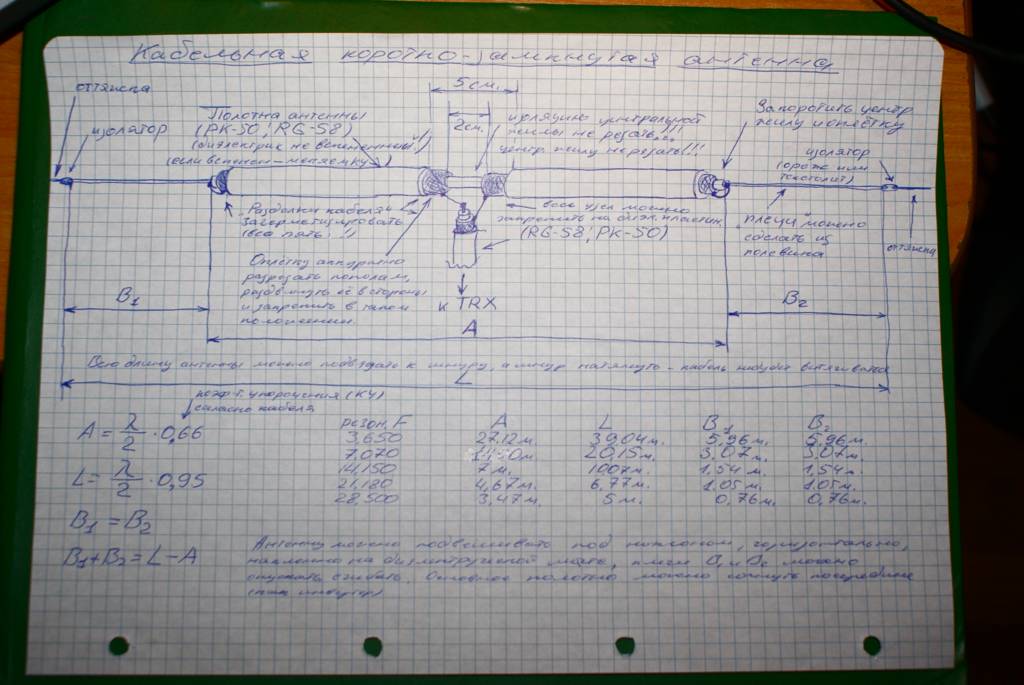 Кабельная коротко-замкнутая антенна
оттяжка
изолятор
Полотна антенны
(РК-50, RG-58)
(диэлектрик не вспененный!)
(если вспенен-меняем КУ)
5 см.
2см.
изоляцию центральной
жилы не резать!!!
центр. жилу не резать!!!
Закоротить центр
жилу и оплётку
изолятор
(орех или
текстолит)
Разделки кабеля
загерметизировать
(все пять!)
весь узел можно
закрепить на диэл. пластин.
(RG-58, РК-50)
"плечи" можно
сделать из
полевика
оттяжка
Оплётку аккуратно
разрезать пополам,
раздвинуть её в стороны
и закрепить в таком
положении.
к TRX
B1
A
B2
Всю длину антенны можно подвязать к шнуру, а шнур натянуть - кабель не будет вытягиваться
L
коэф-т. укорочения (КУ)
согласно кабеля
A = λ/2 · 0,66
L = λ/2 · 0,95
B1 = B2
B1+B2 = L-A
резон. F A L B1 B2
3,650 27,12 м. 39,04 м. 5,96 м. 5,96 м.
7,070 20,15 м. 3,07 м. 3,07 м.
14,150 7 м. 1007 м. 1,54 м. 1,54 м.
21,180 4,67 м. 6,77 м. 1,05 м. 1,05 м.
28,500 3,47 м. 5 м. 0,76 м. 0,76 м.
Антенну можно подвешивать под наклоном, горизонтально,
на диэлектрической мачте, плечи B1 и B2 можно
опускать сгибать. Основное полотно можно согнуть посередине